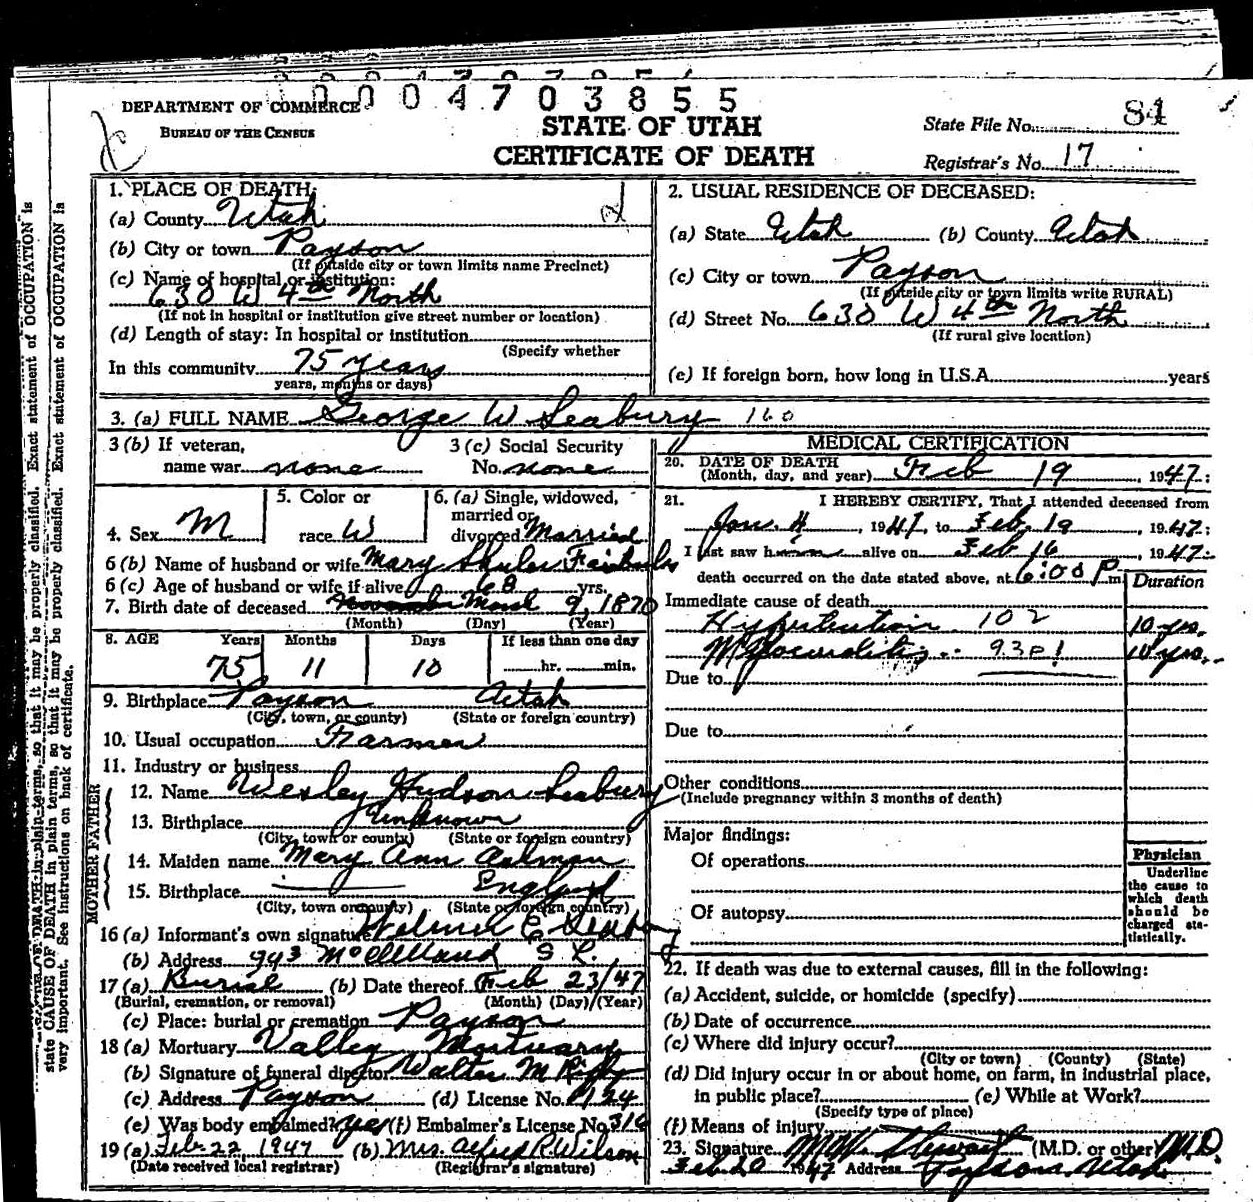 0004703855
DEPARTMENT OF COMMERCE
BUREAU OF THE CENSUS
STATE OF UTAH
CERTIFICATE OF DEATH
State File No. 84
Registrar's No. 17
1. PLACE OF DEATH:
(a) County Utah
(b) City or town Payson
(If outside city or town limits name Precinct)
(c) Name of hospital or institution:
630 W 4th North
(If not in hospital or institution give street number or location)
(d) Length of stay: In hospital or institution
(Specify whether
In this community 75 years
years, months or days)
2. USUAL RESIDENCE OF DECEASED:
(a) State Utah (b) County Utah
(c) City or town Payson
(If outside city or town limits write RURAL)
(d) Street No. 630 W 4th North
(If rural give location)
(e) If foreign born, how long in U.S.A. years
3. (a) FULL NAME George W Seabury 160
3 (b) If veteran, name war none
3 (c) Social Security No. none
4. Sex M
5. Color or race W
6. (a) Single, widowed, married or divorced Married
6 (b) Name of husband or wife Mary Fairbanks
6 (c) Age of husband or wife if alive 68 yrs.
7. Birth date of deceased March 9, 1870
(Month) (Day) (Year)
8. AGE Years Months Days If less than one day
75 11 10 hr. min.
9. Birthplace Payson Utah
(City, town, or county) (State or foreign country)
10. Usual occupation Farmer
11. Industry or business
FATHER
12. Name Wesley Hudson Seabury
13. Birthplace Unknown
(City, town or county) (State or foreign country)
MOTHER
14. Maiden name Mary Ann
15. Birthplace England
(City, town or county) (State or foreign country)
16 (a) Informant's own signature E Seabury
(b) Address 943 McClelland S L.
17 (a) Burial (b) Date thereof Feb 23/47
(Burial, cremation, or removal) (Month) (Day) (Year)
(c) Place: burial or cremation Payson
18 (a) Mortuary Valley Mortuary
(b) Signature of funeral director Walter M
(c) Address Payson (d) License No. 124
(e) Was body embalmed? yes (f) Embalmer's License No. 316
19 (a) Feb. 22, 1947 (b) Mrs. Alfred R. Wilson
(Date received local registrar) (Registrar's signature)
MEDICAL CERTIFICATION
20. DATE OF DEATH
(Month, day, and year) Feb 19, 1947:
21. I HEREBY CERTIFY, That I attended deceased from
Jan. 4, 1947, to Feb. 19, 1947:
I last saw him alive on Feb 16, 1947:
death occurred on the date stated above, at 6:00 P m. Duration
Immediate cause of death
Hypertension 102 10 yrs.
Myocarditis 93 10 yrs.
Due to
Due to
Other conditions
(Include pregnancy within 3 months of death)
Major findings:
Of operations
Of autopsy
Physician
Underline the cause to which death should be charged statistically.
22. If death was due to external causes, fill in the following:
(a) Accident, suicide, or homicide (specify)
(b) Date of occurrence
(c) Where did injury occur?
(City or town) (County) (State)
(d) Did injury occur in or about home, on farm, in industrial place,
in public place? (e) While at Work?
(Specify type of place)
(f) Means of injury
23. Signature Stewart (M.D. or other) M.D.
Feb 20 1947 Address Payson Utah
state CAUSE OF DEATH in plain terms, so that it may be properly classified. Exact statement of OCCUPATION is
very important. See instructions on back of certificate.